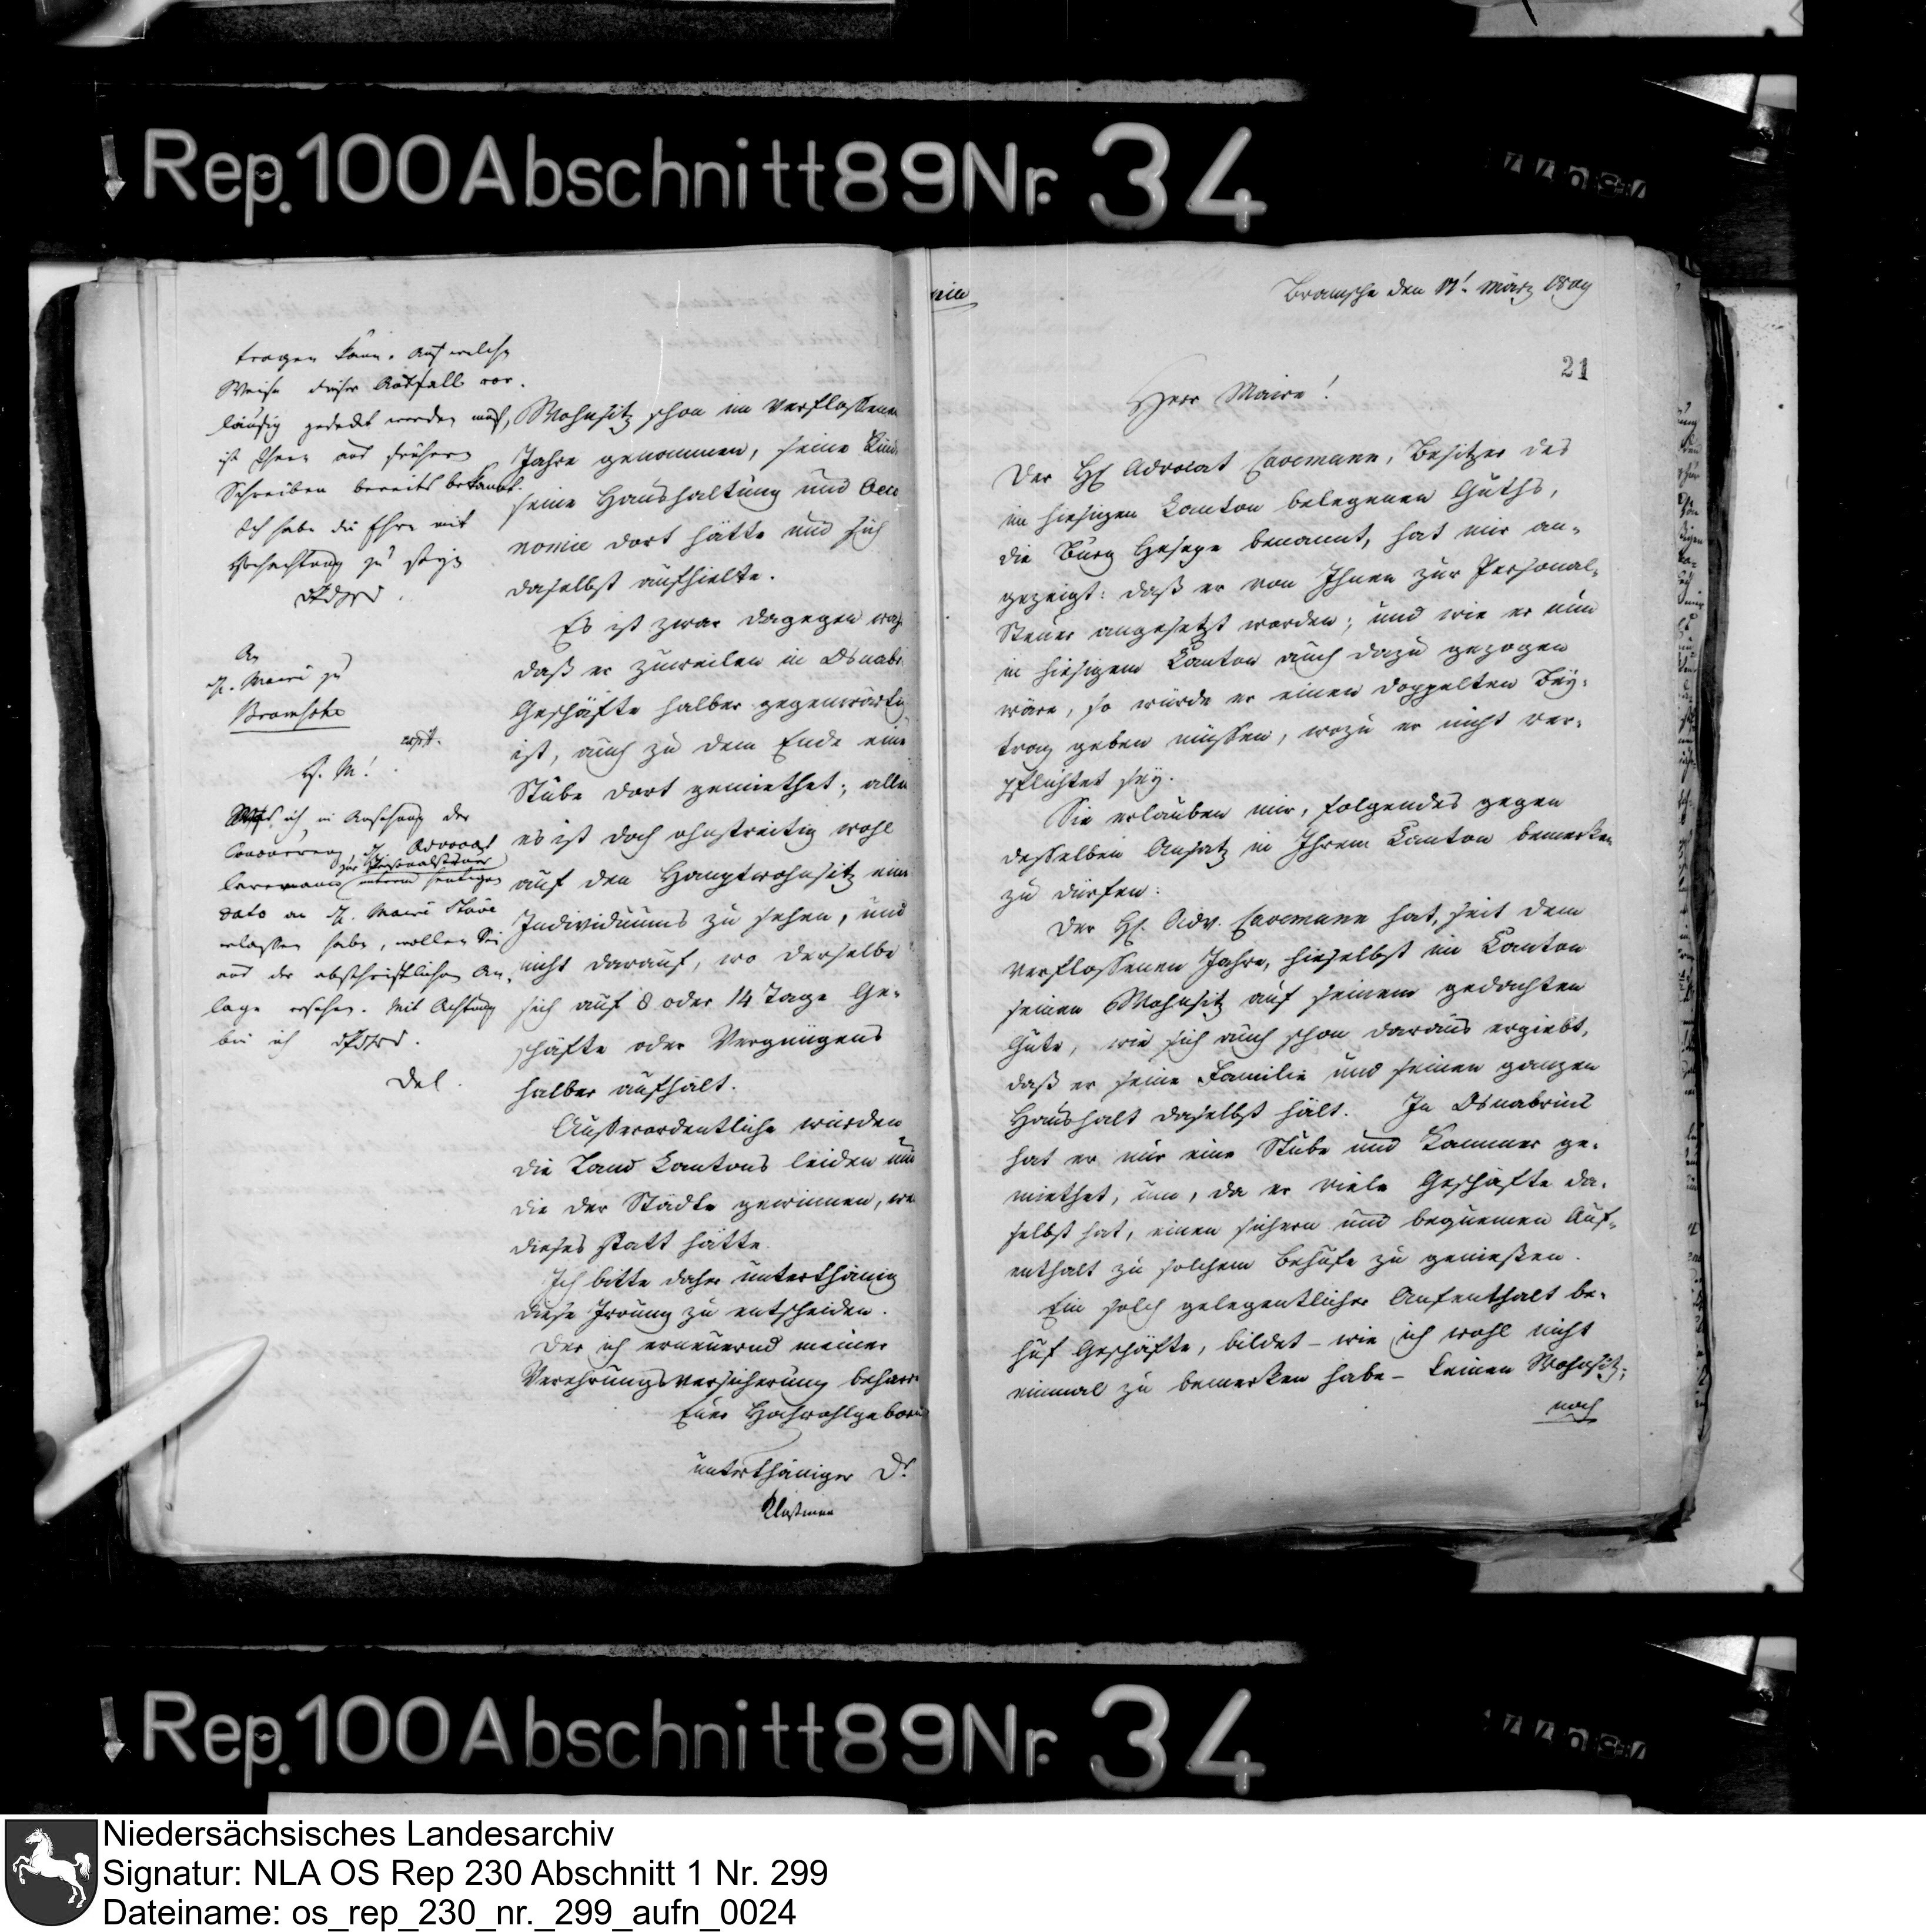 Rep. 100 Abschnitt 89 Nr. 34
tragen kann. Auf welche
Weise dieser Ausfall vor-
läufig gedeckt werden muß,
ist Ihnen aus frühern
Schreiben bereits bekannt.
Ich habe die Ehre mit
Hochachtung zu seyn
An
H. Maire zu
Bramsche
H. M.!
Was ich in Ansehung der
H. Advocat
zur Personalsteuer
Lovemann unterm heutigen
dato an H. Maire Stüve
erlassen habe, wollen Sie
aus der abschriftlichen An-
lage ersehen. Mit Achtung
bin ich
Del.
Wohnsitz schon im verflossenen
Jahre genommen, seine
seine Haushaltung und Oeco
nomie dort hätte und sich
daselbst aufhielte.
Es ist zwar dagegen
daß er zuweilen in Osnabr
Geschäfte halber gegenwärtig
ist, auch zu dem Ende eine
Stube dort gemiethet; allei
es ist doch ohnstreitig wohl
auf den Hauptwohnsitz eine
Individuums zu sehen, und
nicht darauf, wo derselbe
sich auf 8 oder 14 Tage Ge-
schäfte oder Vergnügens
halber aufhält.
Außerordentliche würden
die Land Kantons leiden und
die der Städte gewinnen, we
dieses statt hätte.
Ich bitte daher unterthänig
diese Irrung zu entscheiden.
Der ich erneuernd meiner
Verehrungsversicherung beharre
Euer Hochwohlgeboren
unterthäniger Dr.
Klußmann
Bramsche den 17t. März 1809
21
Herr Maire!
Der H. Advocat Lovemann, Besitzer des
im hiesigen Kanton belegenen Guths,
die Burg Hesepe benannt, hat mir an-
gezeigt: daß er von Ihnen zur Personal-
Steuer angesetzt worden; und wie er nun
in hiesigem Kanton auch dazu gezogen
wäre, so würde er einen doppelten Bey-
trag geben müssen, wozu er nicht ver-
pflichtet sey.
Sie erlauben mir, folgendes gegen
desselben Ansatz in Ihrem Kanton bemerken
zu dürfen:
Der H. Adv. Lovemann hat, seit dem
verflossenen Jahre, hieselbst im Kanton
seinen Wohnsitz auf seinem gedachten
Gute, wie sich auch schon daraus ergiebt,
daß er seine Familie und seinen ganzen
Haushalt daselbst hält. In Osnabrück
hat er nur eine Stube und Kammer ge-
miethet, um, da er viele Geschäfte da-
selbst hat, einen sichern und bequemen Auf-
enthalt zu solchem Behufe zu genießen.
Ein solch gelegentlicher Aufenthalt be-
huf Geschäfte, bildet – wie ich wohl nicht
einmal zu bemerken habe – keinen Wohnsitz;
noch
Rep. 100 Abschnitt 89 Nr. 34
Niedersächsisches Landesarchiv
Signatur: NLA OS Rep 230 Abschnitt 1 Nr. 299
Dateiname: os_rep_230_nr._299_aufn_0024